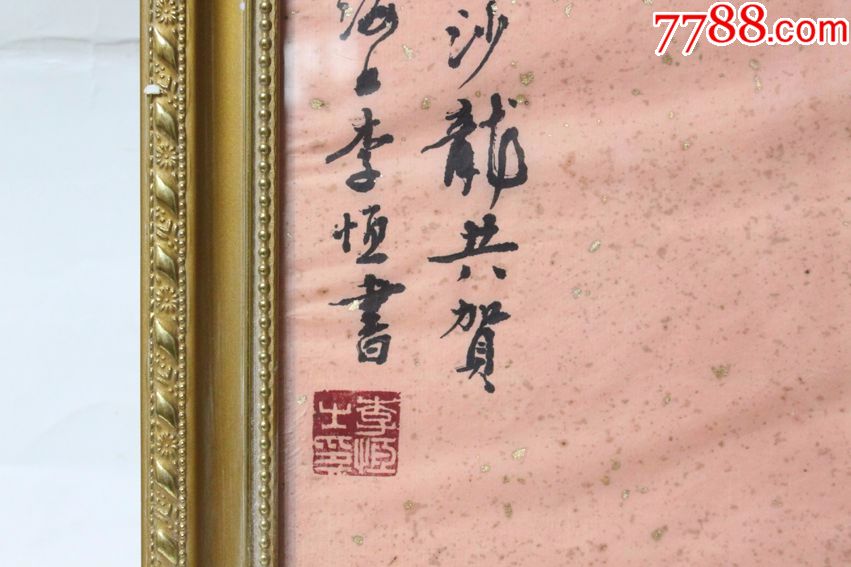 7788.com
沙龍共賀
海上李恒書
李恒之印